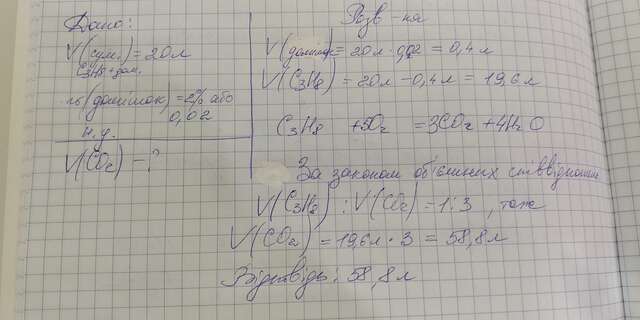 Дано:
V(сум.) = 20л
C₃H₈ + дом.
(домішок) = 2% або
0,02
н.у.
V(CO₂) - ?
Розв-ня
V(домішок) = 20л · 0,02 = 0,4л
V(C₃H₈) = 20л - 0,4л = 19,6л
C₃H₈ + 5O₂ = 3CO₂ + 4H₂O
За законом об'ємних співвідношень
V(C₃H₈) : V(CO₂) = 1:3, тож
V(CO₂) = 19,6л · 3 = 58,8л
Відповідь: 58,8л